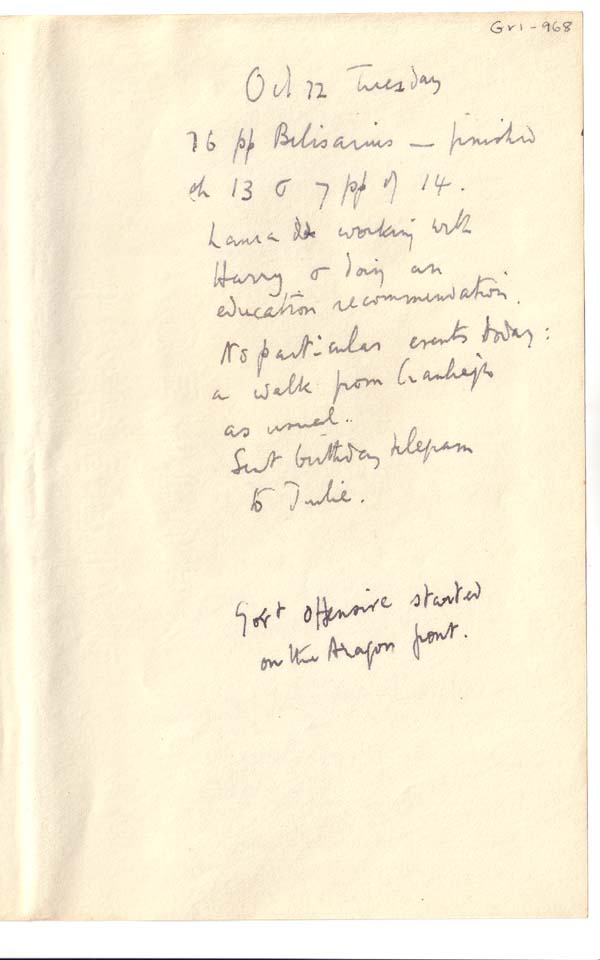 Gr1-968
Oct 12 Tuesday
16 pp Belisarius — finished
ch 13 & 7 pp of 14.
Laura working with
Harry & doing an
education recommendation.
No particular events today:
a walk from Cranleigh
as usual..
Sent birthday telegram
to Julie.
Govt offensive started
on the Aragon front.